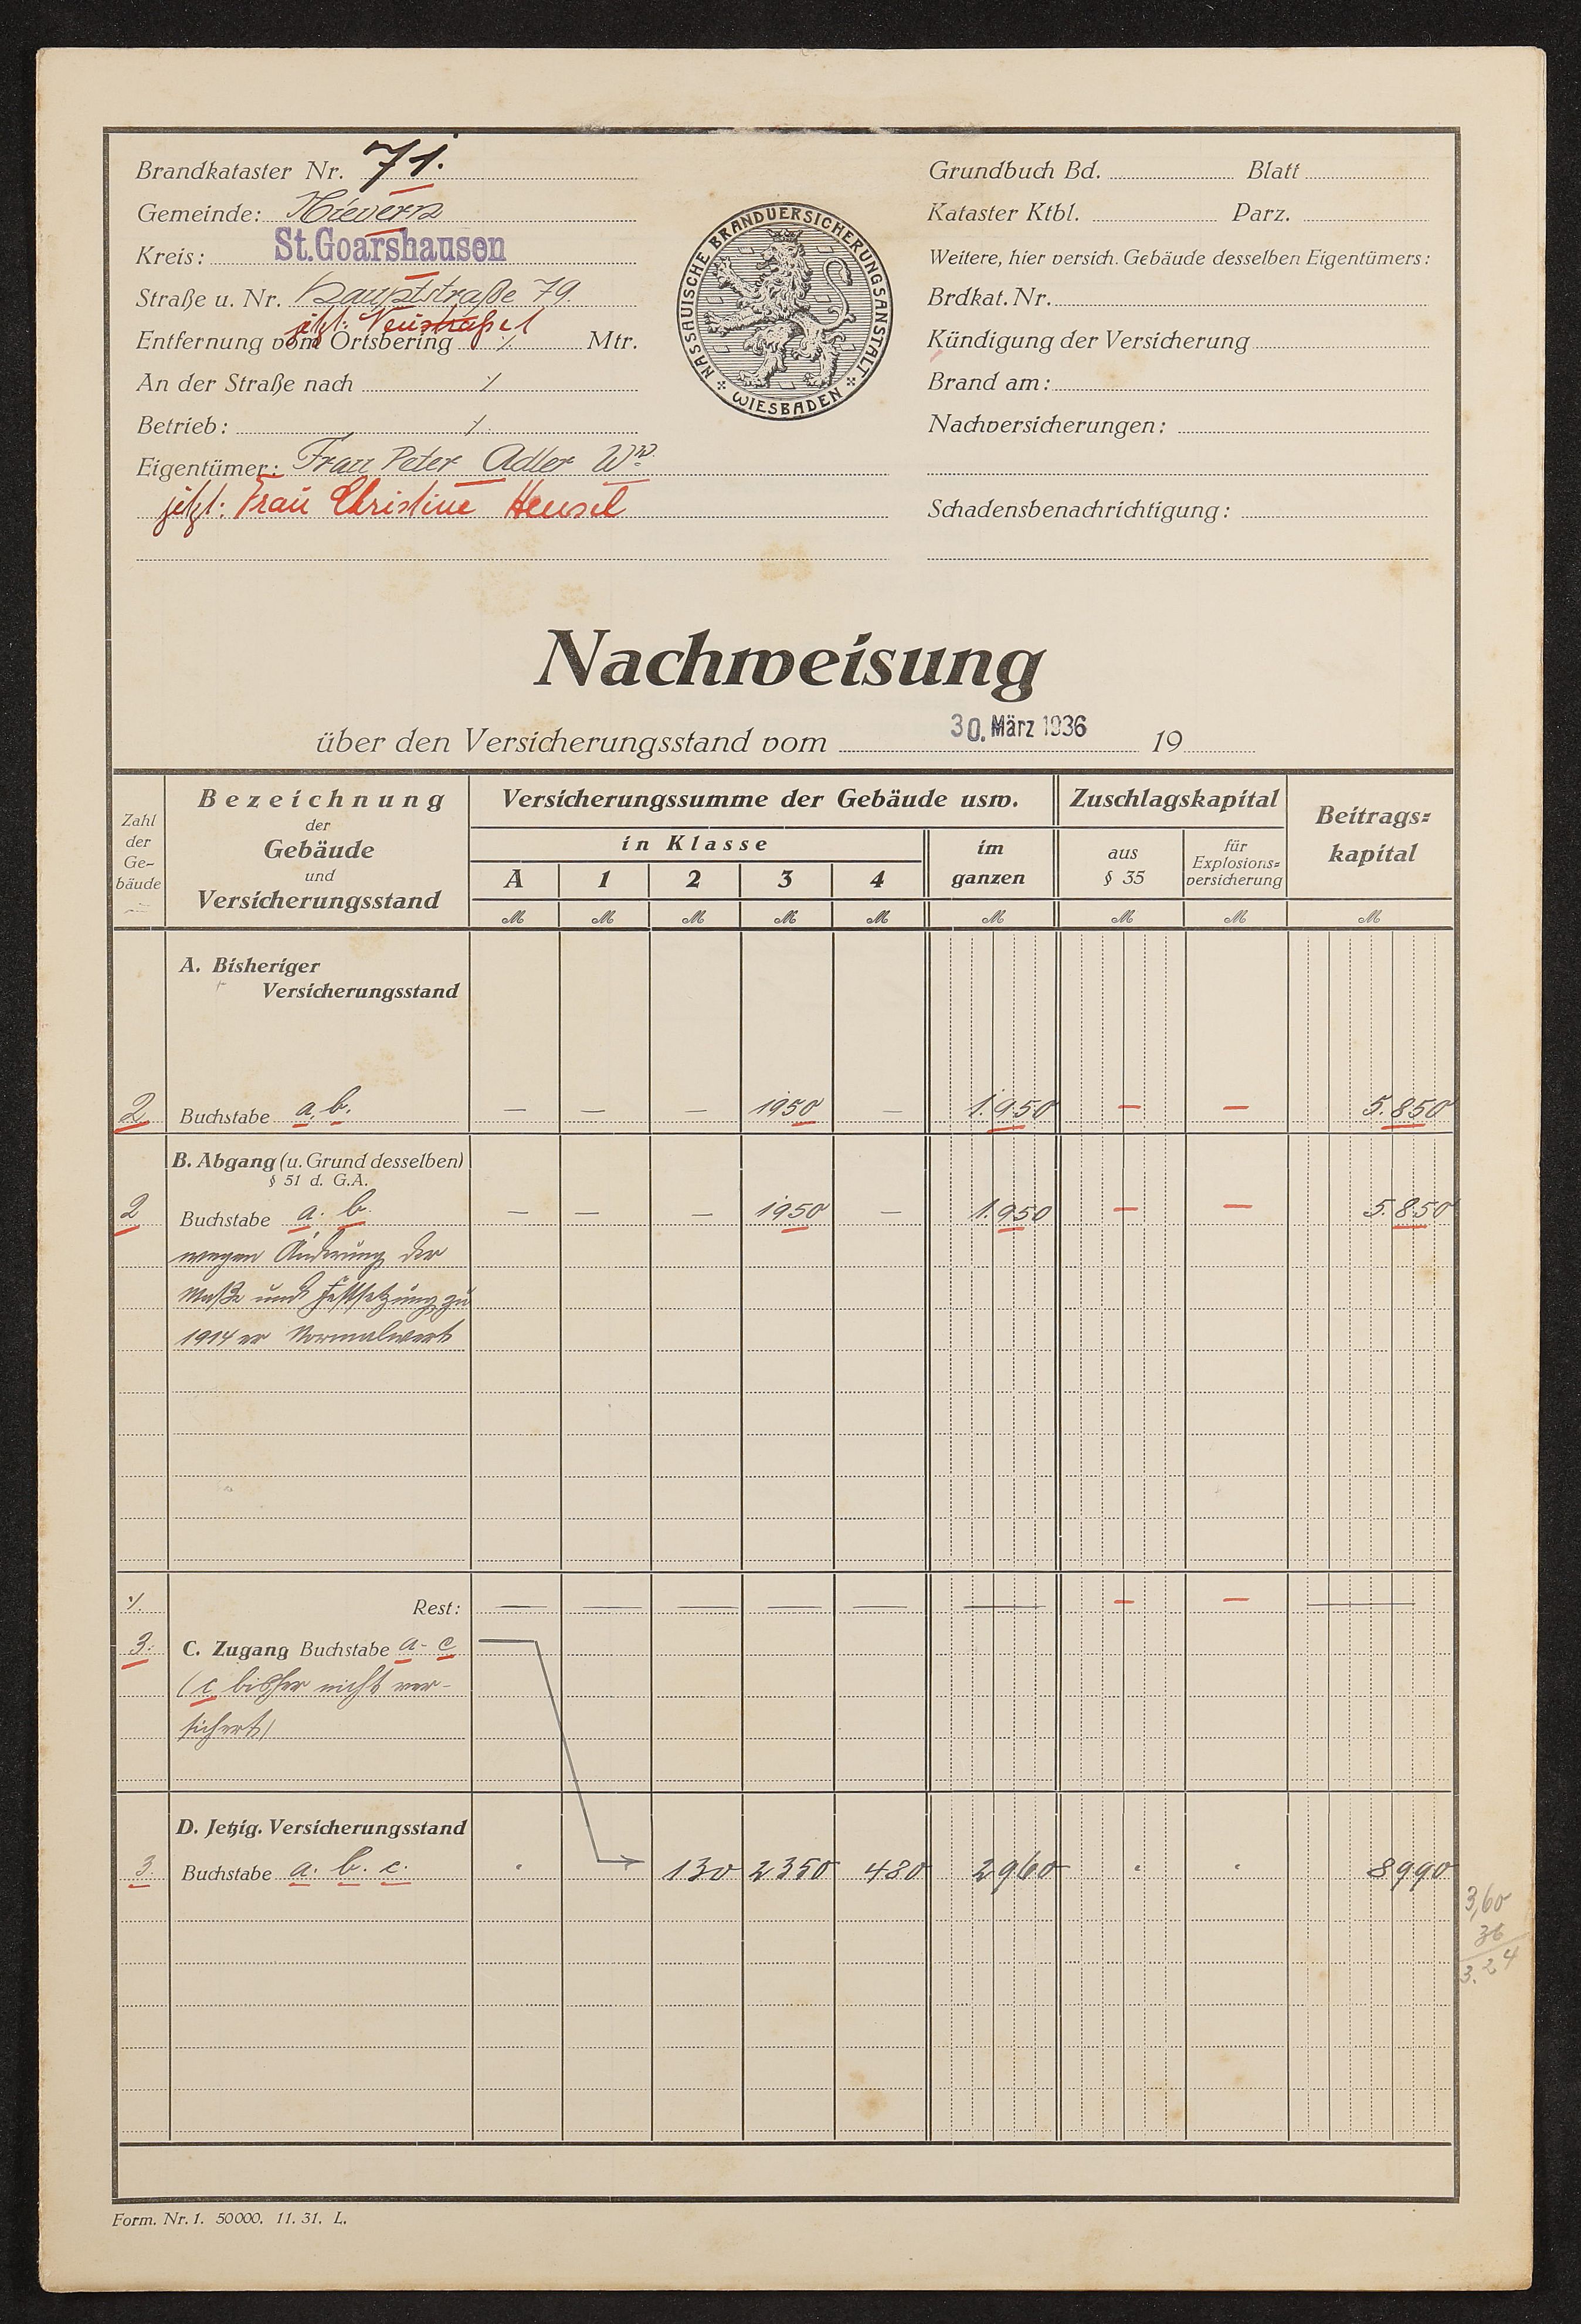 Brandkataster Nr. 71.
Gemeinde: Nievern
Kreis: St.Goarshausen
Straße u. Nr. Hauptstraße 79.
jetzt: Neustraße 1
Entfernung vom Ortsbering ./. Mtr.
An der Straße nach ./.
Betrieb: ./.
Eigentümer: Frau Peter Adler Ww.
jetzt: Frau Christine Hensel
NASSAUISCHE BRANDVERSICHERUNGSANSTALT
WIESBADEN
Grundbuch Bd. Blatt
Kataster Ktbl. Parz.
Weitere, hier versich. Gebäude desselben Eigentümers:
Brdkat. Nr.
Kündigung der Versicherung
Brand am:
Nachversicherungen:
Schadensbenachrichtigung:
Nachweisung
über den Versicherungsstand vom 30. März 1936 19
Zahl der Ge-bäude
Bezeichnung der Gebäude und Versicherungsstand
Versicherungssumme der Gebäude usw.
in Klasse
A 1 2 3 4
im ganzen
Zuschlagskapital
aus § 35
für Explosions-versicherung
Beitrags-kapital
M M M M M M M M M
A. Bisheriger
Versicherungsstand
2 Buchstabe a, b. — — — 1950 — 1.950 — — 5.850
B. Abgang (u. Grund desselben)
§ 51 d. G.A.
2 Buchstabe a. b. — — — 1950 — 1.950 — — 5.850
wegen Änderung der
Maße und Festsetzung zu
1914 er Normalwert
./. Rest: — — — — — — — — —
3. C. Zugang Buchstabe a - c
(c bisher nicht ver-
sichert)
D. Jetzig. Versicherungsstand
3. Buchstabe a. b. c. . 130 2350 480 2960 . . 8990
3,60
36
3.24
Form. Nr. 1. 50000. 11. 31. L.